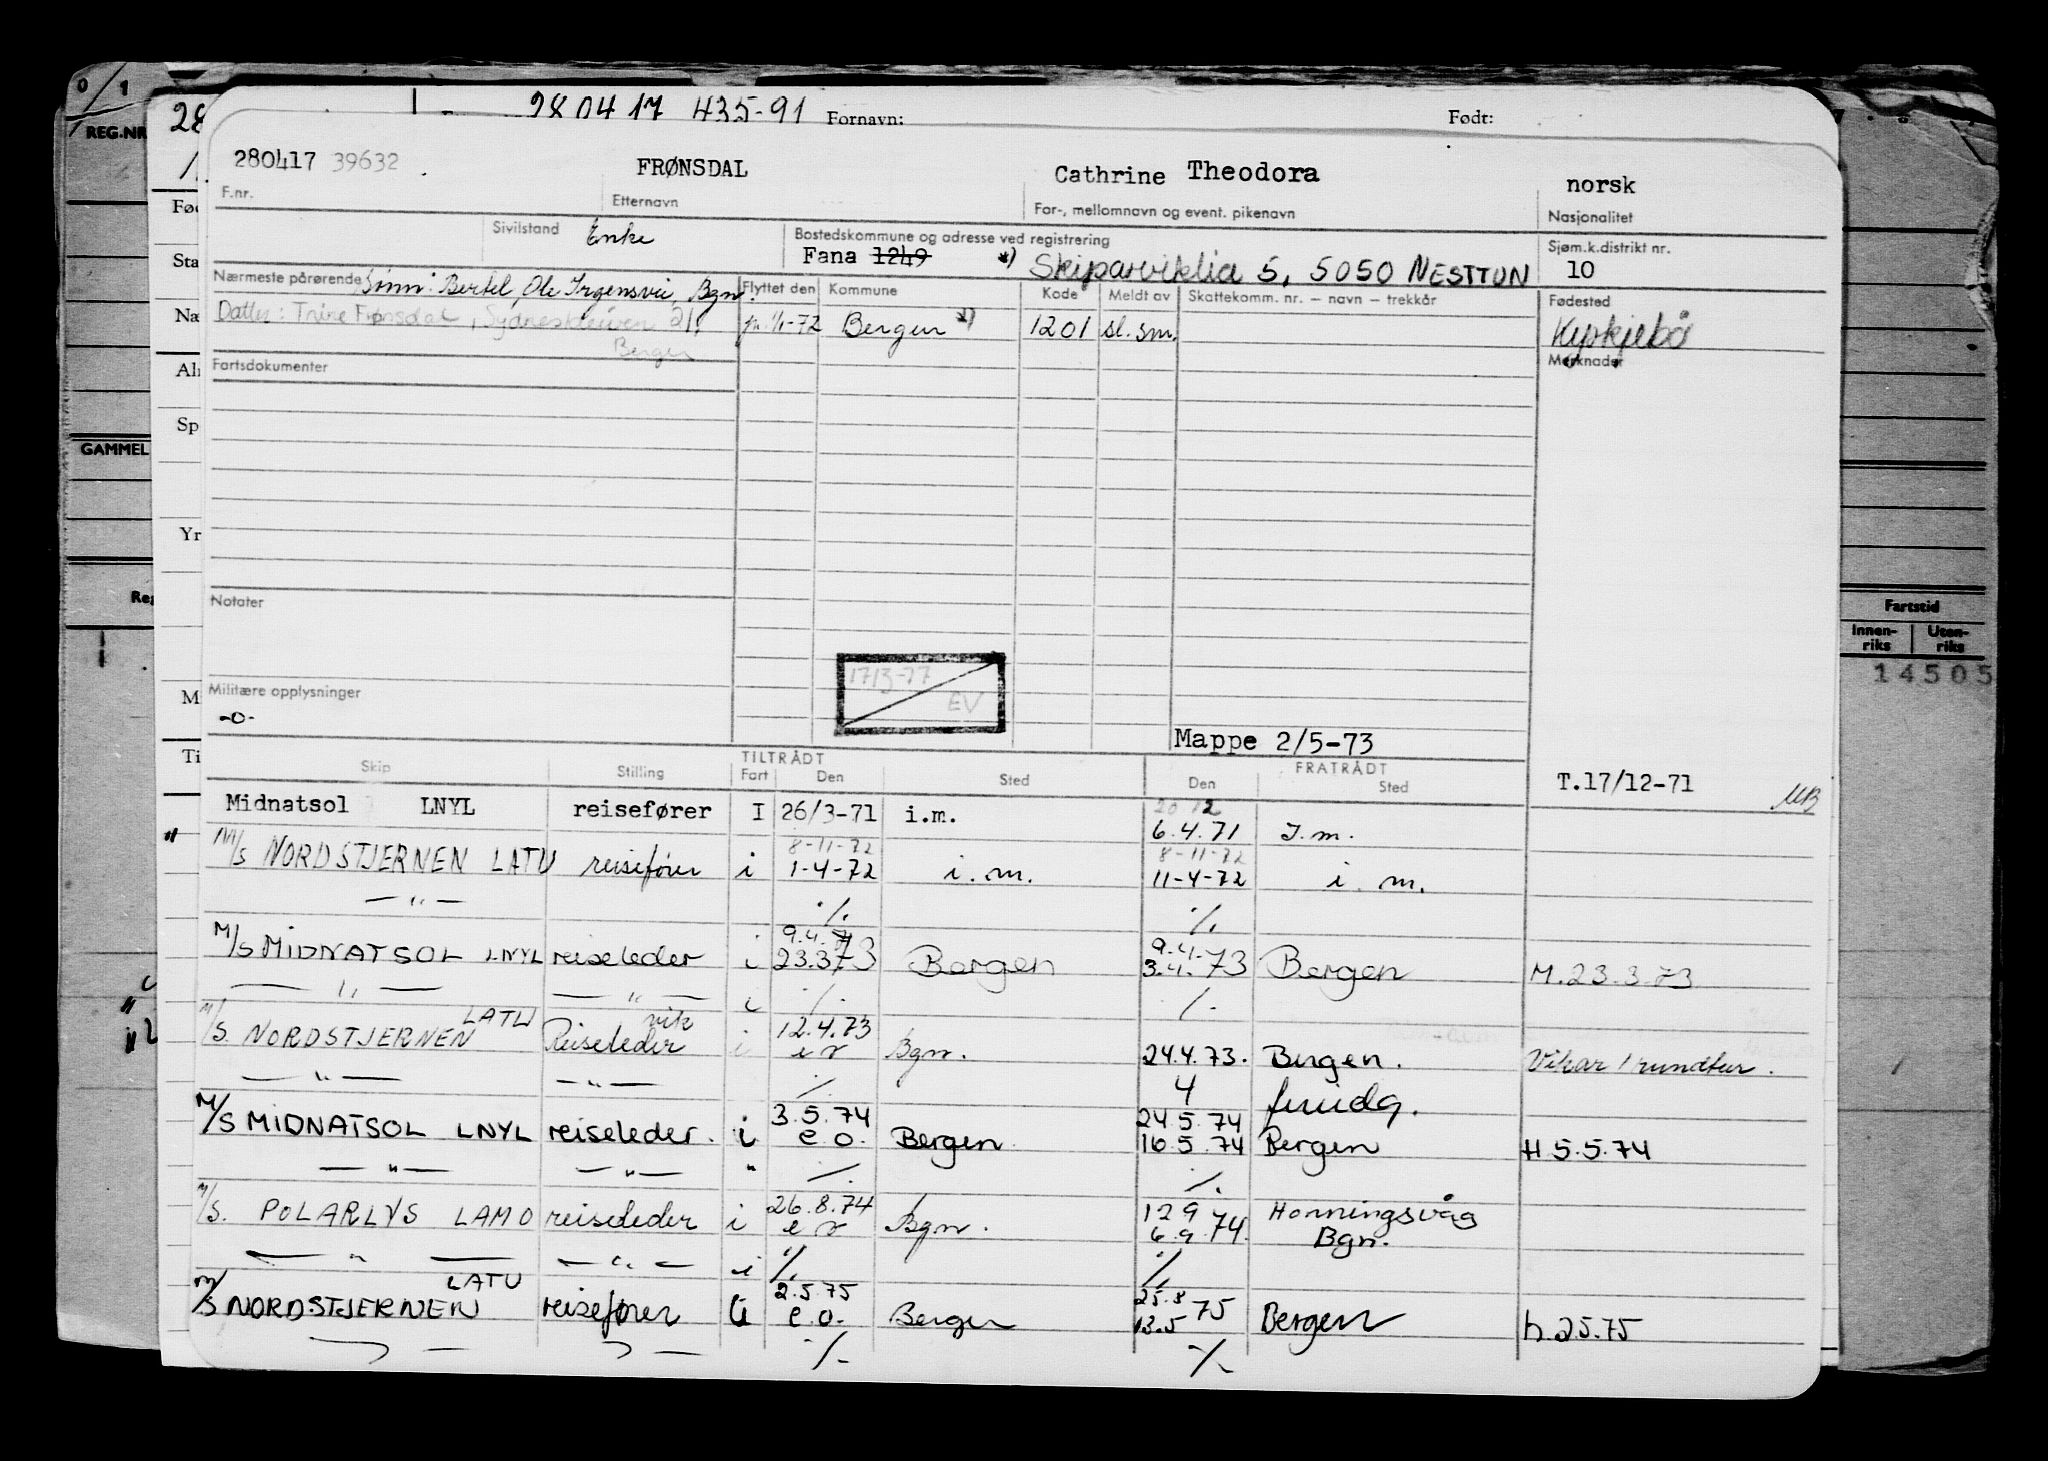 0/1
REG.NR
28 28 04 17 435-91 Fornavn: Født:
280417 39632 FRØNSDAL Cathrine Theodora norsk
F.nr. Etternavn For-, mellomnavn og event. pikenavn Nasjonalitet
Sivilstand Enke Bostedskommune og adresse ved registrering Sjøm.k.distrikt nr.
Fana 1249 *) Skiparviklia 5, 5050 NESTTUN 10
Nærmeste pårørende Sønn: Bertel, Ole Irgensvei, Bgn. Flyttet den Kommune Kode Meldt av Skattekomm. nr. – navn – trekkår Fødested
Datter: Trine Frønsdal, Sydneskleiven 21, Bergen
1/1-72 Bergen *) 1201 sl. sm. Kyrkjebø
Fartsdokumenter Merknader
GAMMEL
Notater
Fartstid
Innen-riks Uten-riks
14505
1713-77
EV
Militære opplysninger
-o-
Mappe 2/5-73
Skip Stilling TILTRÅDT Fart Den Sted FRATRÅDT Den Sted
T.17/12-71 MB
Midnatsol LNYL reisefører I 26/3-71 i.m. 6.4.71 I.m.
8-11-72 8-11-72
M/S NORDSTJERNEN LATU reisefører i 1-4-72 i.m. 11-4-72 i.m.
— " — ./. ./.
9.4.73 9.4.
M/S MIDNATSOL LNYL reiseleder i 23.3.73 Bergen 3.4.73 Bergen M.23.3.73
— " — — " — i ./. ./.
LATU vik 12.4.73
M/S. NORDSTJERNEN Reiseleder i e r Bgn. 24.4.73. Bergen. Vikar 1 rundtur.
— " — — " — ./. 4
3.5.74 24.5.74
M/S MIDNATSOL LNYL reiseleder. i e o. Bergen. 16.5.74 Bergen H 5.5.74
— " — — " — " ./. ./.
26.8.74 12 9 Honningsvåg
M/S. POLARLYS LAMO reiseleder i e r Bgn. 6.9.74. Bgn.
— " — — " — i ./. ./.
LATU 2.5.75 25.8
M/S NORDSTJERNEN reisefører i e o. Bergen 13.5 75 Bergen h.25.75
— " — — " — ./. ./.